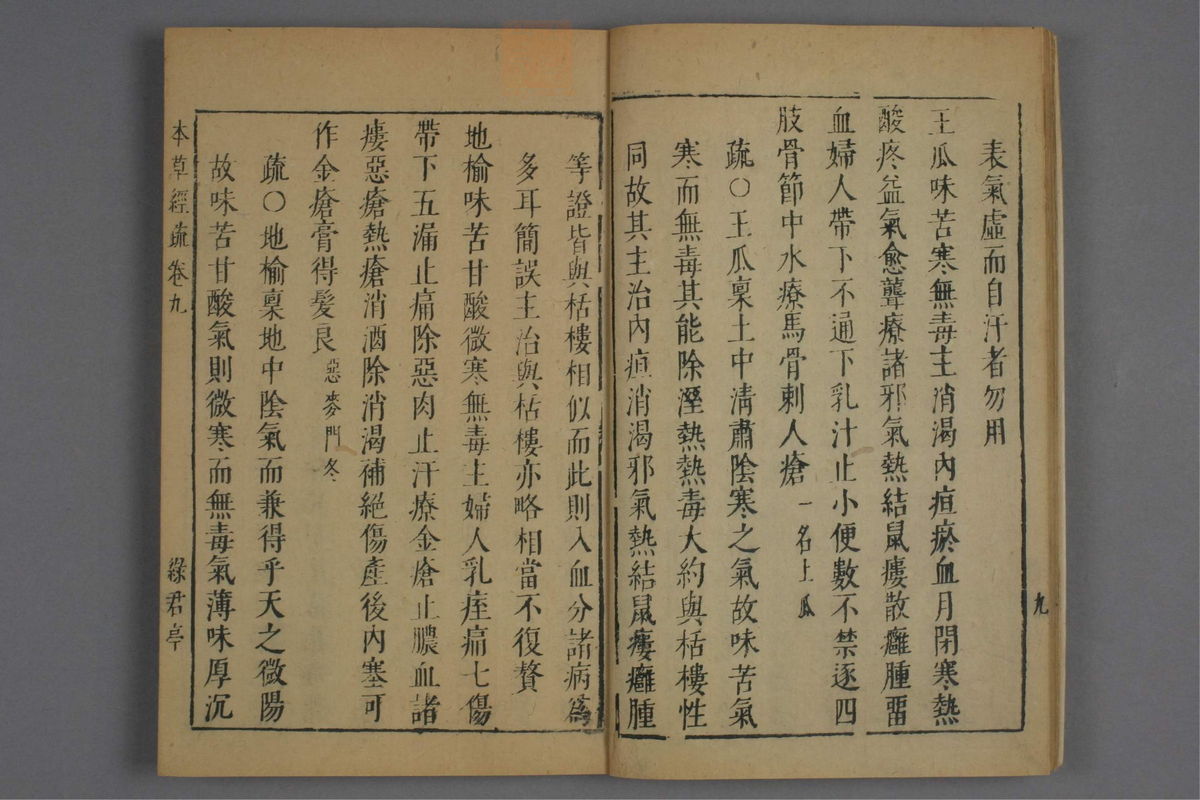 表氣虛而自汗者勿用
王瓜味苦寒無毒主消渴內疸瘀血月閉寒熱
酸疼益氣愈聾療諸邪氣熱結鼠瘻散癰腫畱
血婦人帶下不通下乳汁止小便數不禁逐四
肢骨節中水療馬骨刺人瘡一名土瓜
疏○王瓜稟土中清肅陰寒之氣故味苦氣
寒而無毒其能除溼熱熱毒大約與栝樓性
同故其主治內疸消渴邪氣熱結鼠瘻癰腫
九
等證皆與栝樓相似而此則入血分諸病爲
多耳簡誤主治與栝樓亦略相當不復贅
地榆味苦甘酸微寒無毒主婦人乳痓痛七傷
帶下五漏止痛除惡肉止汗療金瘡止膿血諸
瘻惡瘡熱瘡消酒除消渴補絕傷產後內塞可
作金瘡膏得髮良惡麥門冬
疏○地榆稟地中陰氣而兼得乎天之微陽
故味苦甘酸氣則微寒而無毒氣薄味厚沉
本草經疏卷九
綠君亭